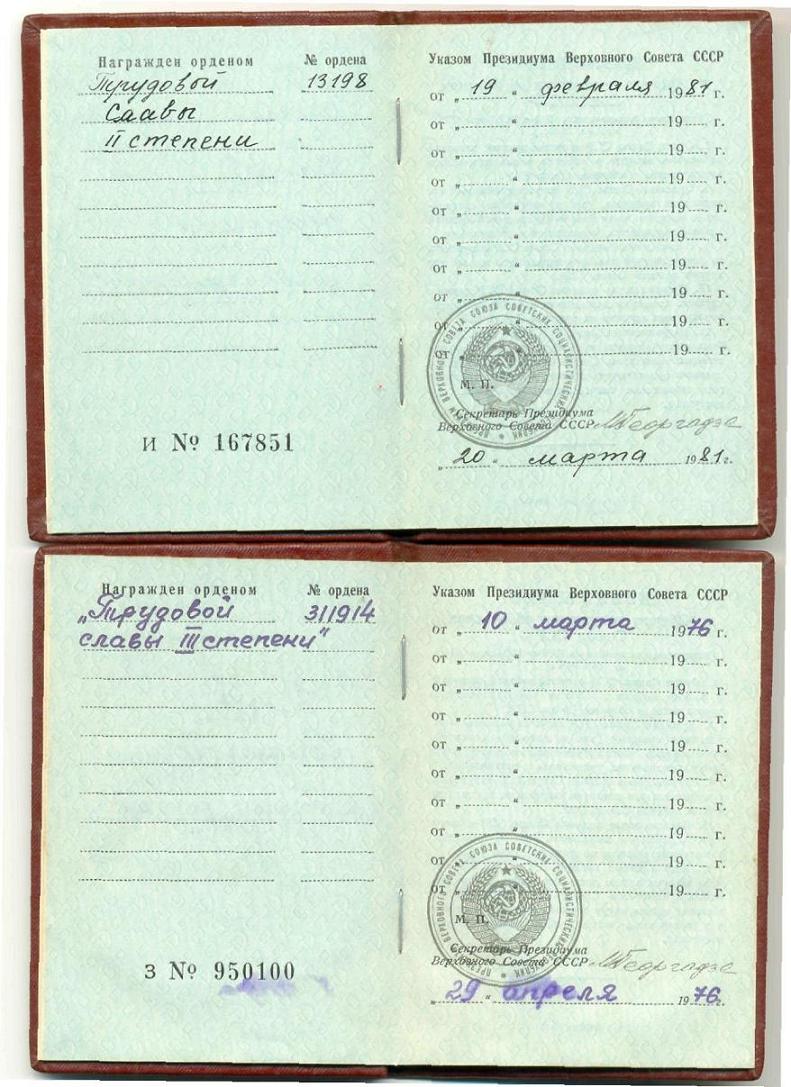 Награжден орденом № ордена
Трудовой 13198
Славы
II степени
И № 167851
Указом Президиума Верховного Совета СССР
от „ 19 “ февраля 1981 г.
от „ “ 19 г.
от „ “ 19 г.
от „ “ 19 г.
от „ “ 19 г.
от „ “ 19 г.
от „ “ 19 г.
от „ “ 19 г.
от „ “ 19 г.
от „ “ 19 г.
ПРЕЗИДИУМ ВЕРХОВНОГО СОВЕТА СОЮЗА СОВЕТСКИХ СОЦИАЛИСТИЧЕСКИХ
М. П.
Секретарь Президиума
Верховного Совета СССР МГеоргадзе
„ 20 “ марта 1981 г.
Награжден орденом № ордена
„Трудовой 311914
славы III степени“
З № 950100
Указом Президиума Верховного Совета СССР
от „ 10 “ марта 1976 г.
от „ “ 19 г.
от „ “ 19 г.
от „ “ 19 г.
от „ “ 19 г.
от „ “ 19 г.
от „ “ 19 г.
от „ “ 19 г.
от „ “ 19 г.
от „ “ 19 г.
ПРЕЗИДИУМ ВЕРХОВНОГО СОВЕТА СОЮЗА СОВЕТСКИХ СОЦИАЛИСТИЧЕСКИХ
М. П.
Секретарь Президиума
Верховного Совета СССР МГеоргадзе
„ 29 “ апреля 1976 г.